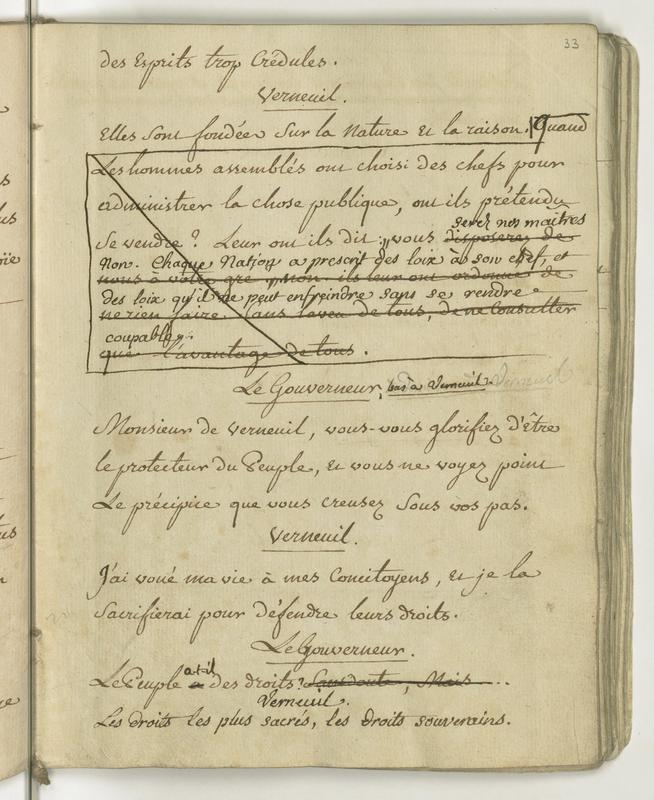 33
des Esprits trop Crédules.
Verneuil.
Elles sont fondées sur la Nature et la raison. Quand
Les hommes assemblés ont choisi des chefs pour
administrer la chose publique, ont ils prétendu
serez nos maîtres
se vendre ? Leur ont ils dit : „ vous disposerez de
Non. Chaque Nation a prescrit des loix à son chef, et
nous à votre gré „ Non. ils leur ont ordonné de
des loix qu'il ne peut enfreindre sans se rendre
ne rien faire sans l'aveu de tous, de ne consulter
coupable.
que l'avantage de tous.
Le Gouverneur, bas à Verneuil. Verneuil
Monsieur de Verneuil, vous-vous glorifiez d'être
le protecteur du Peuple, et vous ne voyez point
Le précipice que vous creusez sous vos pas.
Verneuil.
J'ai voué ma vie à mes Concitoyens, et je la
Sacrifierai pour défendre leurs droits.
Le Gouverneur.
a-t-il
Le Peuple a des droits ? Sans doute, Mais ...
Verneuil.
Les droits les plus sacrés, les droits souverains.